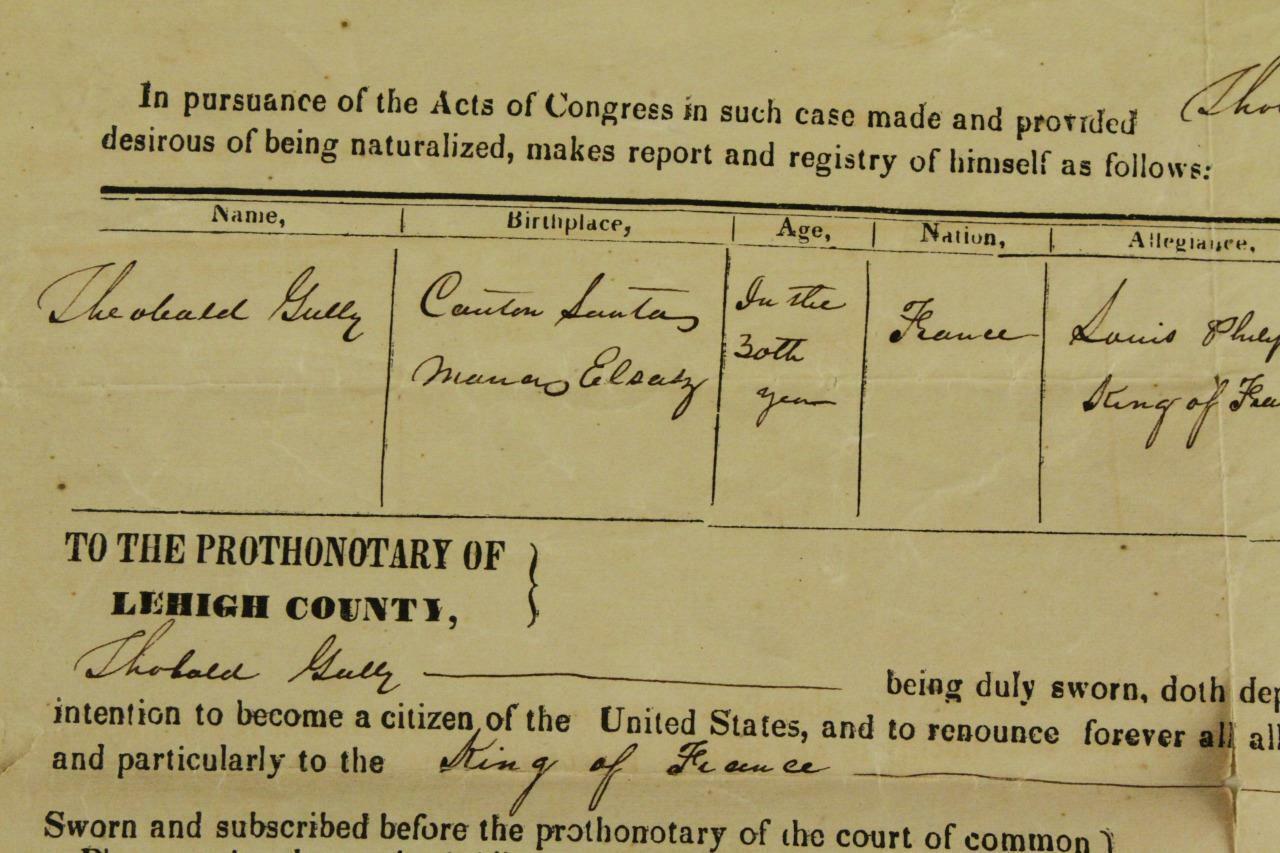 In pursuance of the Acts of Congress in such case made and provided
desirous of being naturalized, makes report and registry of himself as follows:
Name, Birthplace, Age, Nation, Allegiance,
Theobald Gully Canton Santa In the France Louis Philip
30th
Elsatz year King of Fra
TO THE PROTHONOTARY OF
LEHIGH COUNTY,
Thobald Gully being duly sworn, doth dep
intention to become a citizen of the United States, and to renounce forever all all
and particularly to the King of France
Sworn and subscribed before the prothonotary of the court of common